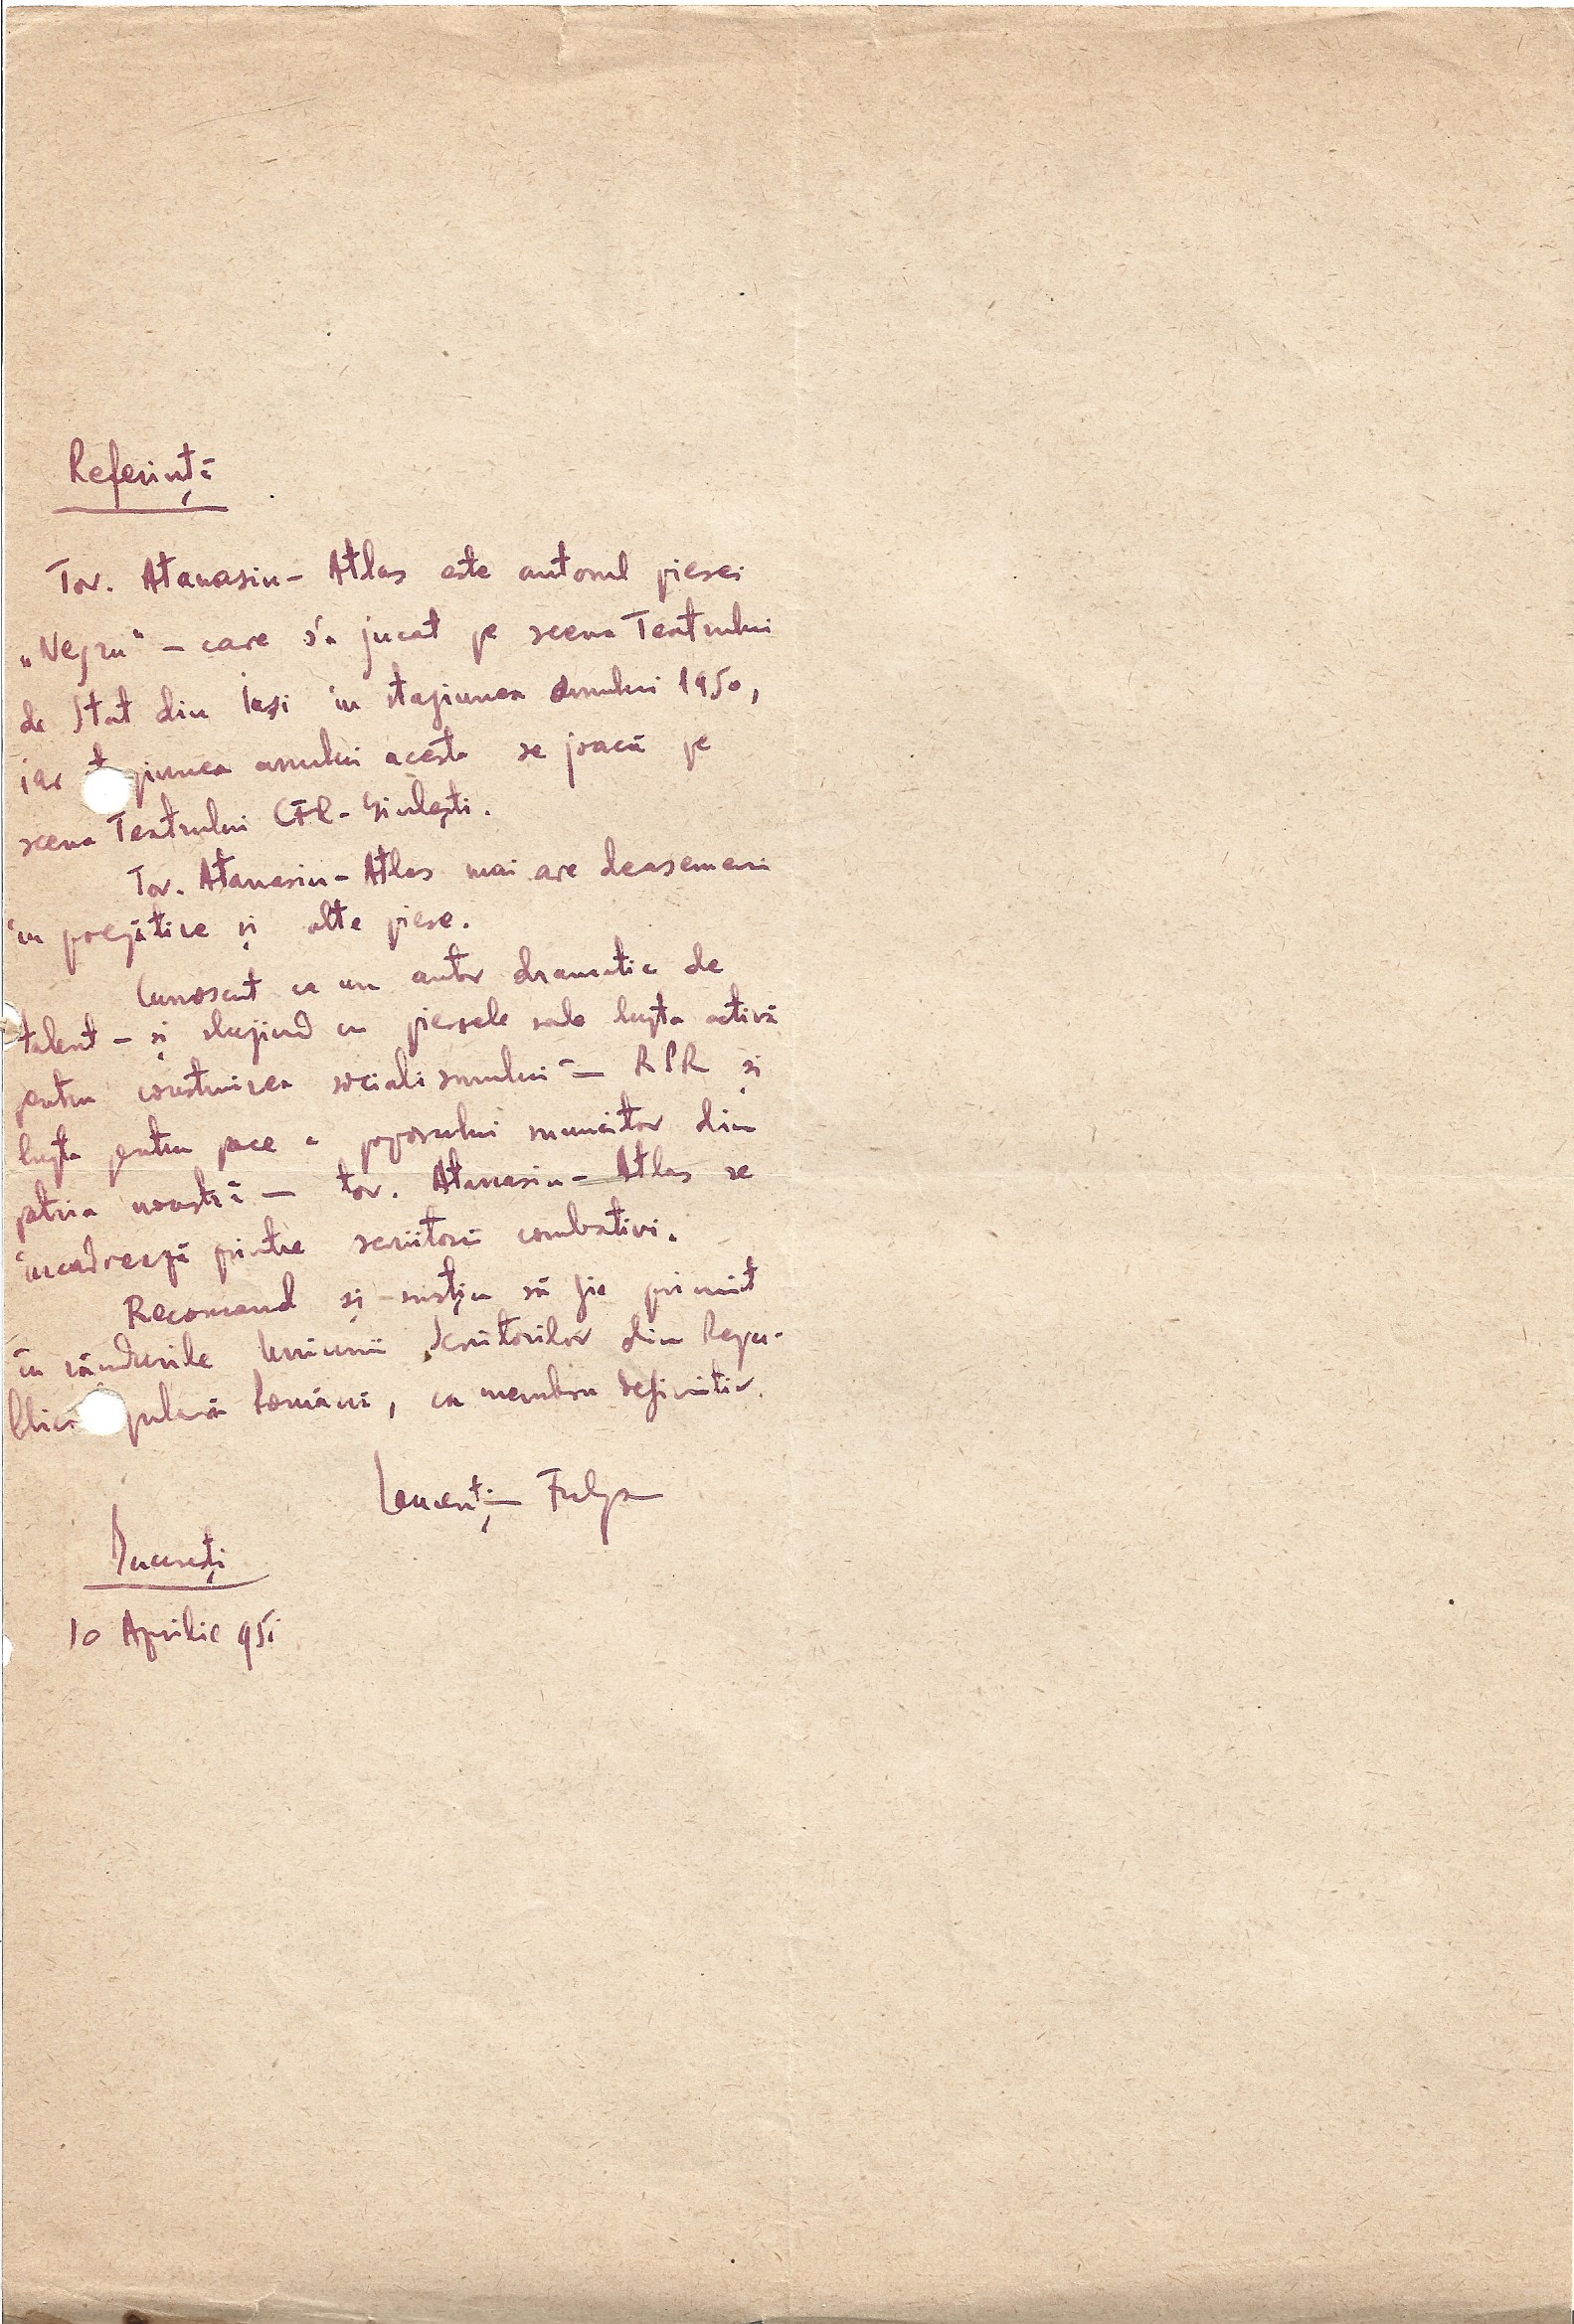 Referință
Tov. Atanasiu - Atlas este autorul piesei
„Negru" - care s'a jucat pe scena Teatrului
de Stat din Iași în stagiunea anului 1950,
iar giunea anului acesta se joacă pe
scena Teatrului CFR - Giulești.
Tov. Atanasiu - Atlas mai are deasemeni
în pregătire și alte piese.
Cunoscut ca un autor dramatic de
talent - și slujind cu piesele sale lupta activă
pentru construirea socialismului în RPR și
lupta pentru pace a poporului muncitor din
patria noastră - tov. Atanasiu - Atlas se
încadrează printre scriitorii combativi.
Recomand și susțin să fie primit
în rândurile Uniunii Scriitorilor din Repu-
blica pulară Română, ca membru definitiv.
Laurențiu Fulga
București
10 Aprilie 951